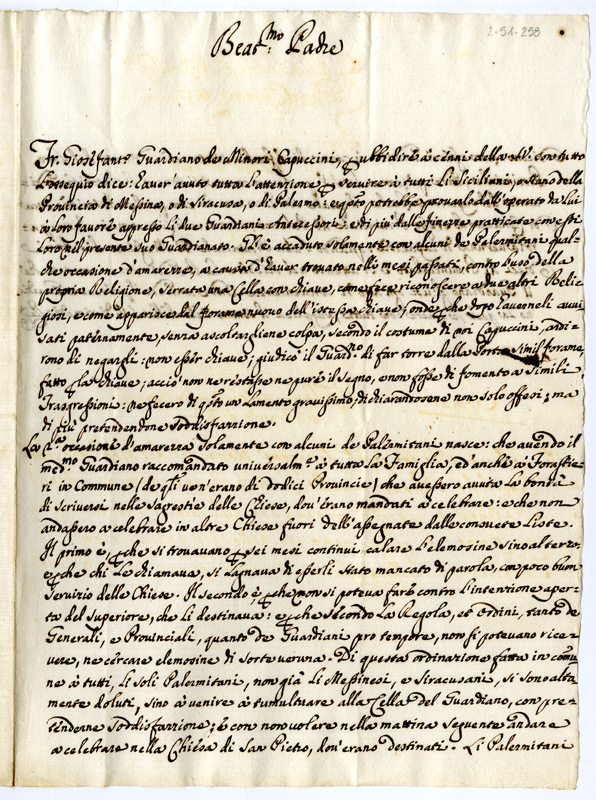 2-51-258
Beat.mo Padre
Fr. Gios. fant.e Guardiano de Minori Capuccini, p ubbidire à cenni della S.V. con tutto
l'ossequio dice: Haver' avuto tutta l'attenzione p servire à tutti li Siciliani, o siano della
Provincia di Messina, o di Siracusa, o di Palermo: e questo potrebbe provarlo dall'operato da lui
a loro favore appresso li due Guardiani Antecessori: e di più dalle finezze pratticate con essi
loro nel presente suo Guardianato. Gl'è accaduto solamente con alcuni de Palermitani qual-
che occasione d'amarezze, a causa d'haver trovato nelli mesi passati, contro l'uso della
propria Religione, serrata una Cella con chiave, come fece riconoscere a due altri Reli-
giosi, e come apparisce dal forame nuovo dell'istessa chiave; onde p che dopo haverneli avvi-
sati paternamente, senza ascoltargliene colpa, secondo il costume di noi Capuccini, ardi-
rono di negargli: non esser chiave; giudicò il Guard.no di far torre dalla Porta simil forame,
fatto p la chiave; acciò non ne restasse ne pure il segno, e non fosse di fomento a simili
Trasgressioni: ne fecero di q.sto un lamento gravissimo, dichiarandosene non solo offesi; ma
di più pretendendone soddisfazzione.
La 2.a occasione d'amarezza solamente con alcuni de Palermitani nasce: che avendo il
med.mo Guardiano raccomandato universalm.e à tutta la Famiglia, ed' anche à Forastie-
ri in commune (de q.li ven'erano di dodici Provincie) che avessero avuta la bontà
di scriversi nelle sagrestie delle Chiese, dov'erano mandati à celebrare: e che non
andassero a celebrare in altre Chiese fuori dell'assegnate dalle consuete Liste.
Il primo è, p che si trovavano p sei mesi continui calare l'elemosine sino al terzo:
e p che chi le chiamava, si lagnava di esserli stato mancato di parola, con poco buon
servizio delle Chiese. Il secondo è, p che non si poteva farlo contro l'intenzione aper-
ta del Superiore, che li destinava: e p che secondo la Regola, et Ordini, tanto de
Generali, e Provinciali, quanto de Guardiani pro tempore, non si potevano rice-
vere, ne cercare elemosine di sorte veruna. Di questa ordinazione fatta in comu-
ne à tutti, li soli Palermitani, non già li Messinesi, e Siracusani, si sono alta-
mente doluti, sino à venire à tumultuare alla Cella del Guardiano, con pre-
tenderne soddisfazzione; e con non volere nella mattina seguente andare
a celebrare nella Chiesa di San Pietro, dov'erano destinati. Li Palermitani